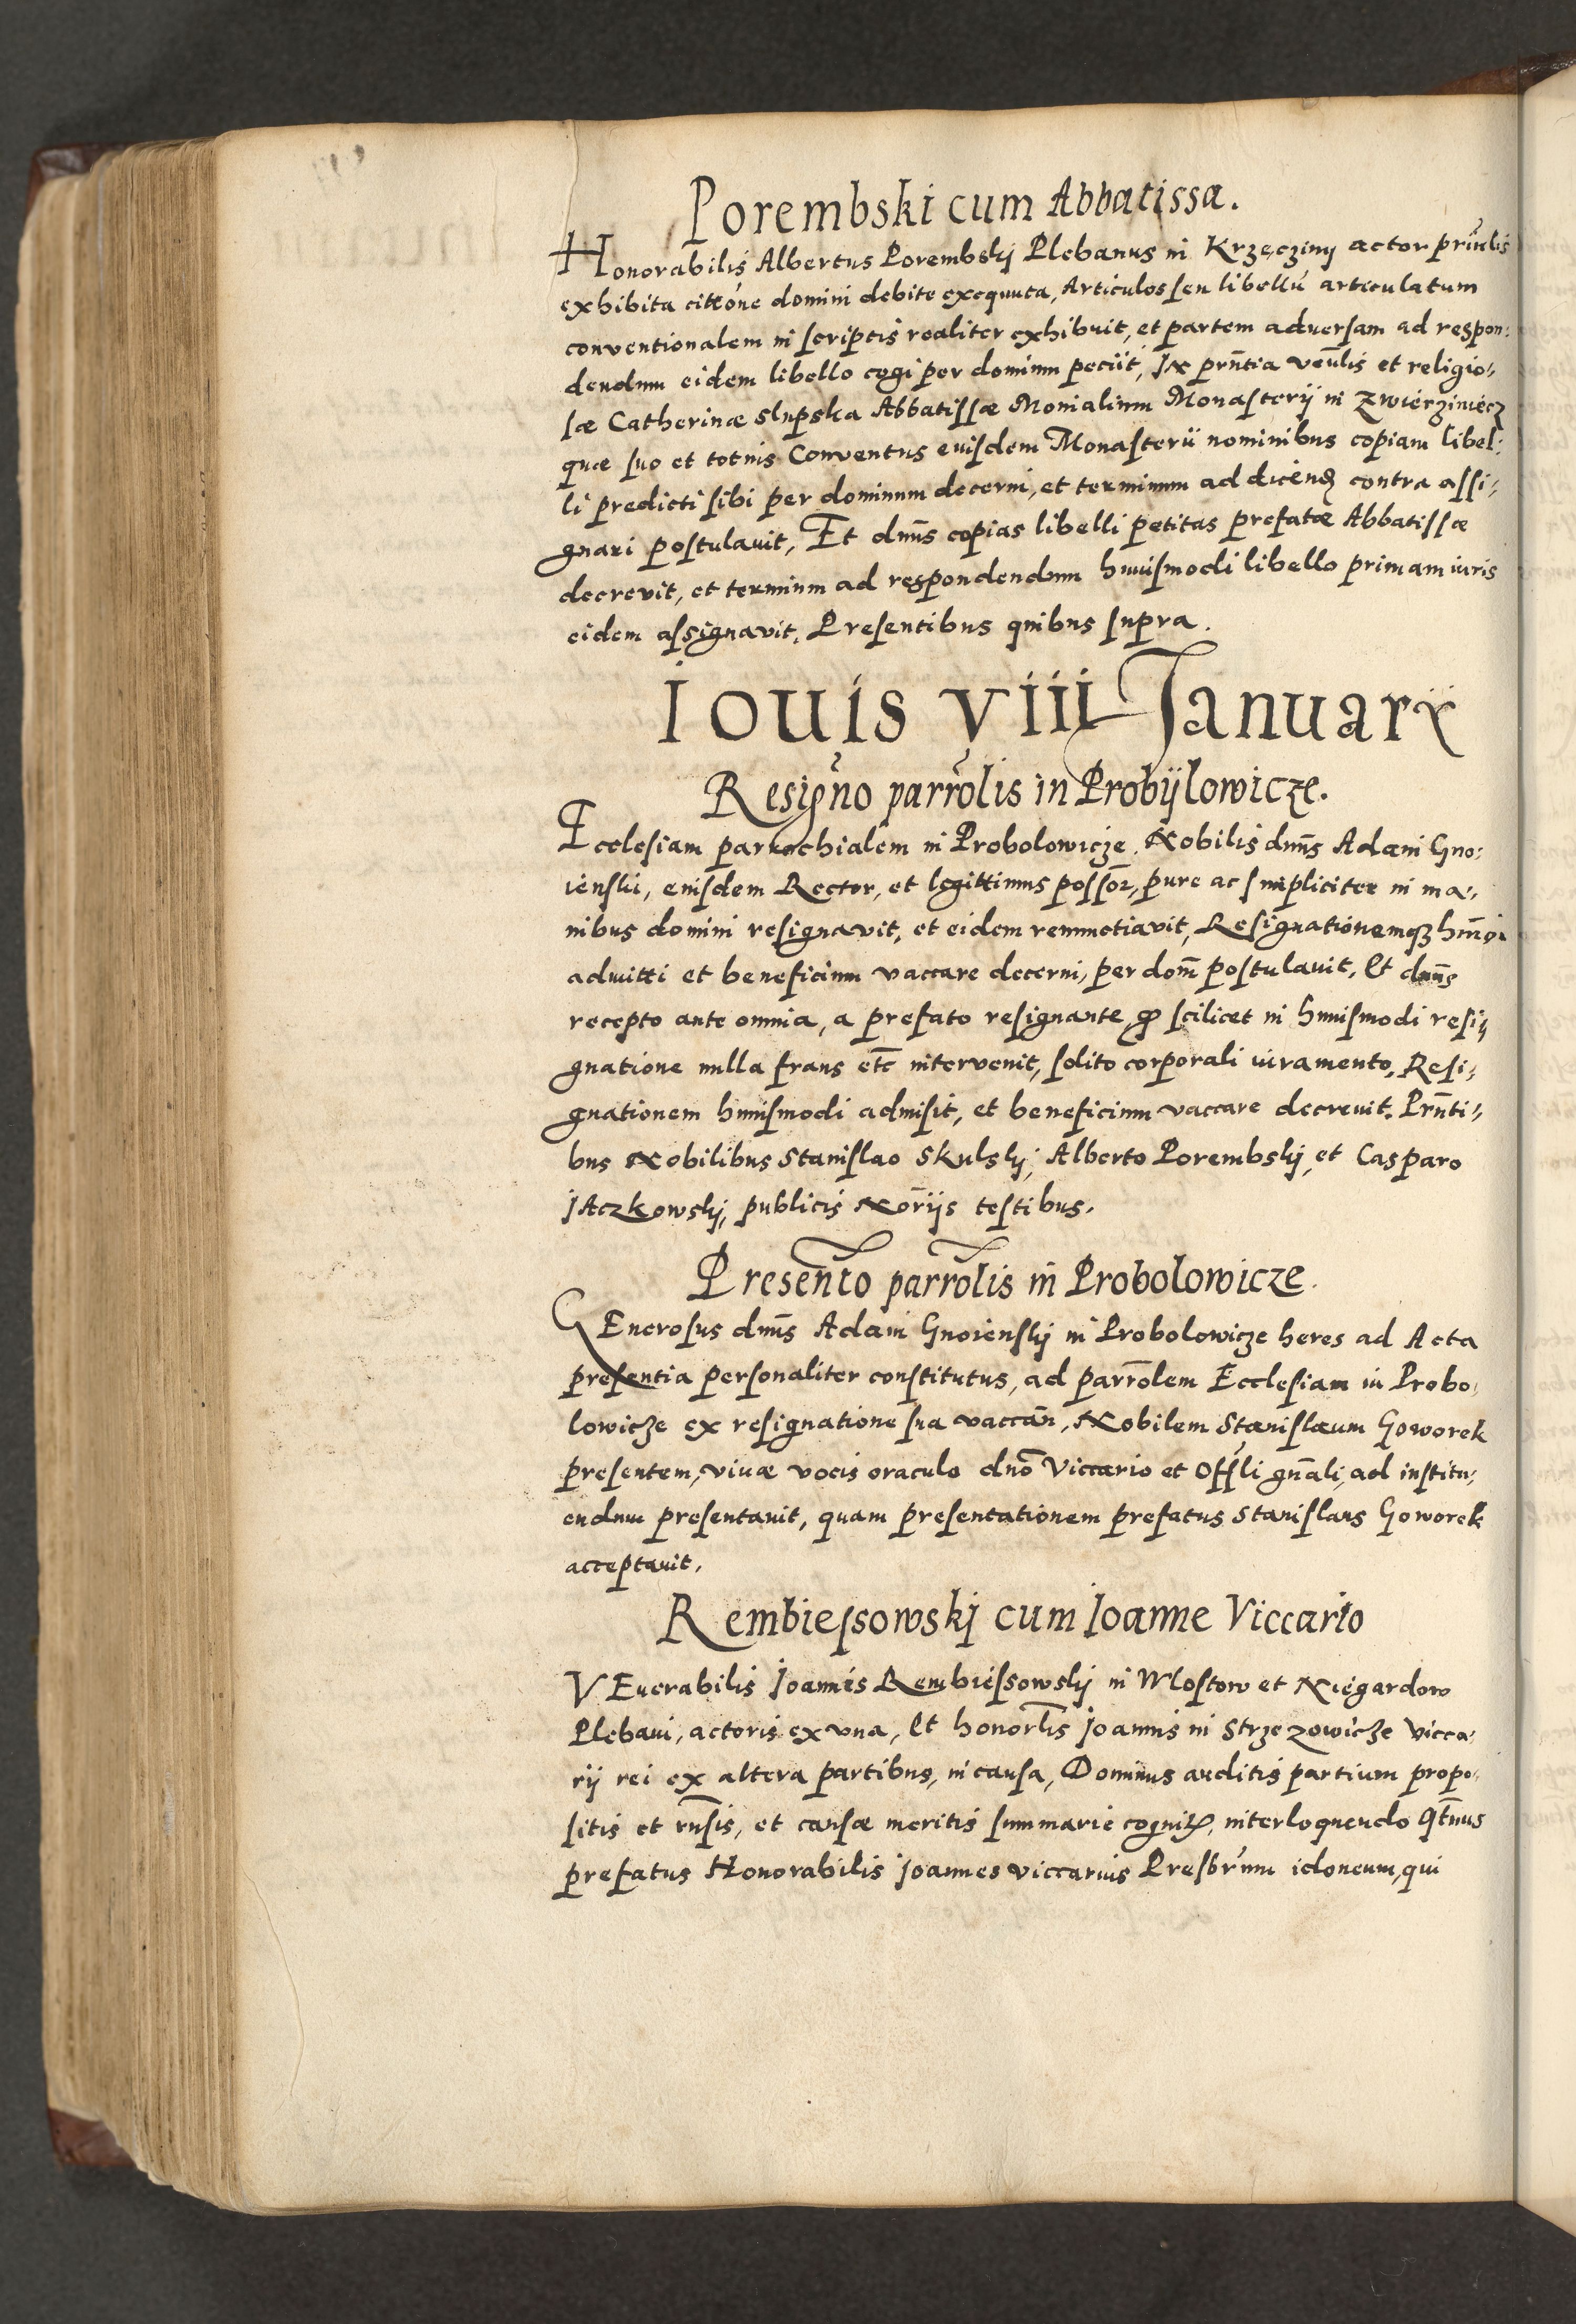 Porembski cum Abbatissa.
Honorabilis Albertus Porembskj Plebanus in Krzęczinij actor prin̄lis
exhibita cittōne domini debite exequuta, Articulos seu libellū articulatum
conventionalem in scriptis realiter exhibuit, et partem adversam ad respon:
dendum eidem libello cogi per dominum peciit, In prn̄tia ven̄lis et religio,
sæ Catherinæ Slupska Abbatissæ Monialium Monasterij in Zwierziniecz
quæ suo et totius Conventus euisdem Monasterii nominibus copiam libel:
li predicti sibi per dominum decerni, et terminum ad dicend contra assi,
gnari postulavit, Et dnn̄s copias libelli petitas prefatæ Abbatissæ
decrevit, et terminum ad respondendum huiusmodi libello primam iuris
eidem assignavit, Presentibus quibus supra.
Iouis viii Januarii
Resigno parrōlis in Probijlowicze.
Ecclesiam parrochialem in Probolowicze, Nobilis dnn̄s Adam Gno:
ienski, euisdem Rector, et legittimus possor, pure ac simpliciter in ma,
nibus domini resignavit, et eidem renunctiavit, Resignationemqȝ hm̄oi
admitti et beneficium vaccare decerni, per dom̄ postulauit, Et dnn̄s
recepto ante omnia, a prefato resignante, qȝ scilicet in huiusmodi resi,
gnatione nulla fraus etc̄ intervenit, solito corporali iuramento, Resi,
gnationem huiusmodi admisit, et beneficium vaccare decreuit, Prn̄ti,
bus Nobilibus Stanislao Skulskj, Alberto Porembskj, et Casparo
Jaczkowskj, publicis Norijs testibus.
Presentō parrōlis in Probolowicze.
Generosus dnn̄s Adam Gnoienskj in Probolowicze heres ad Acta
presentia personaliter constitutus, ad parrōlem Ecclesiam in Probo,
lowicze ex resignatione sua vaccan̄, Nobilem Stanislaum Goworek
presentem, viuæ vocis oraculo dnō Viccario et Offli gn̄ali, ad institu,
endum presentauit, quam presentationem prefatus Stanislaus Goworek
acceptauit.
Rembiessowskj cum Joanne Viccario
Venerabilis Joannis Rembiessowskj in Wlostow et Niegardow
Plebani, actoris ex vna, Et honorl̄is Joannis in Strzezowicze vicca,
rij rei ex altera partibus, in causa, Dominus auditis partium propo,
sitis et rn̄sis, et causæ meritis summarie cognitȝ, interloquendo qt̄nus
prefatus Honorabilis Joannes viccarius Presbr̄um idoneum, qui